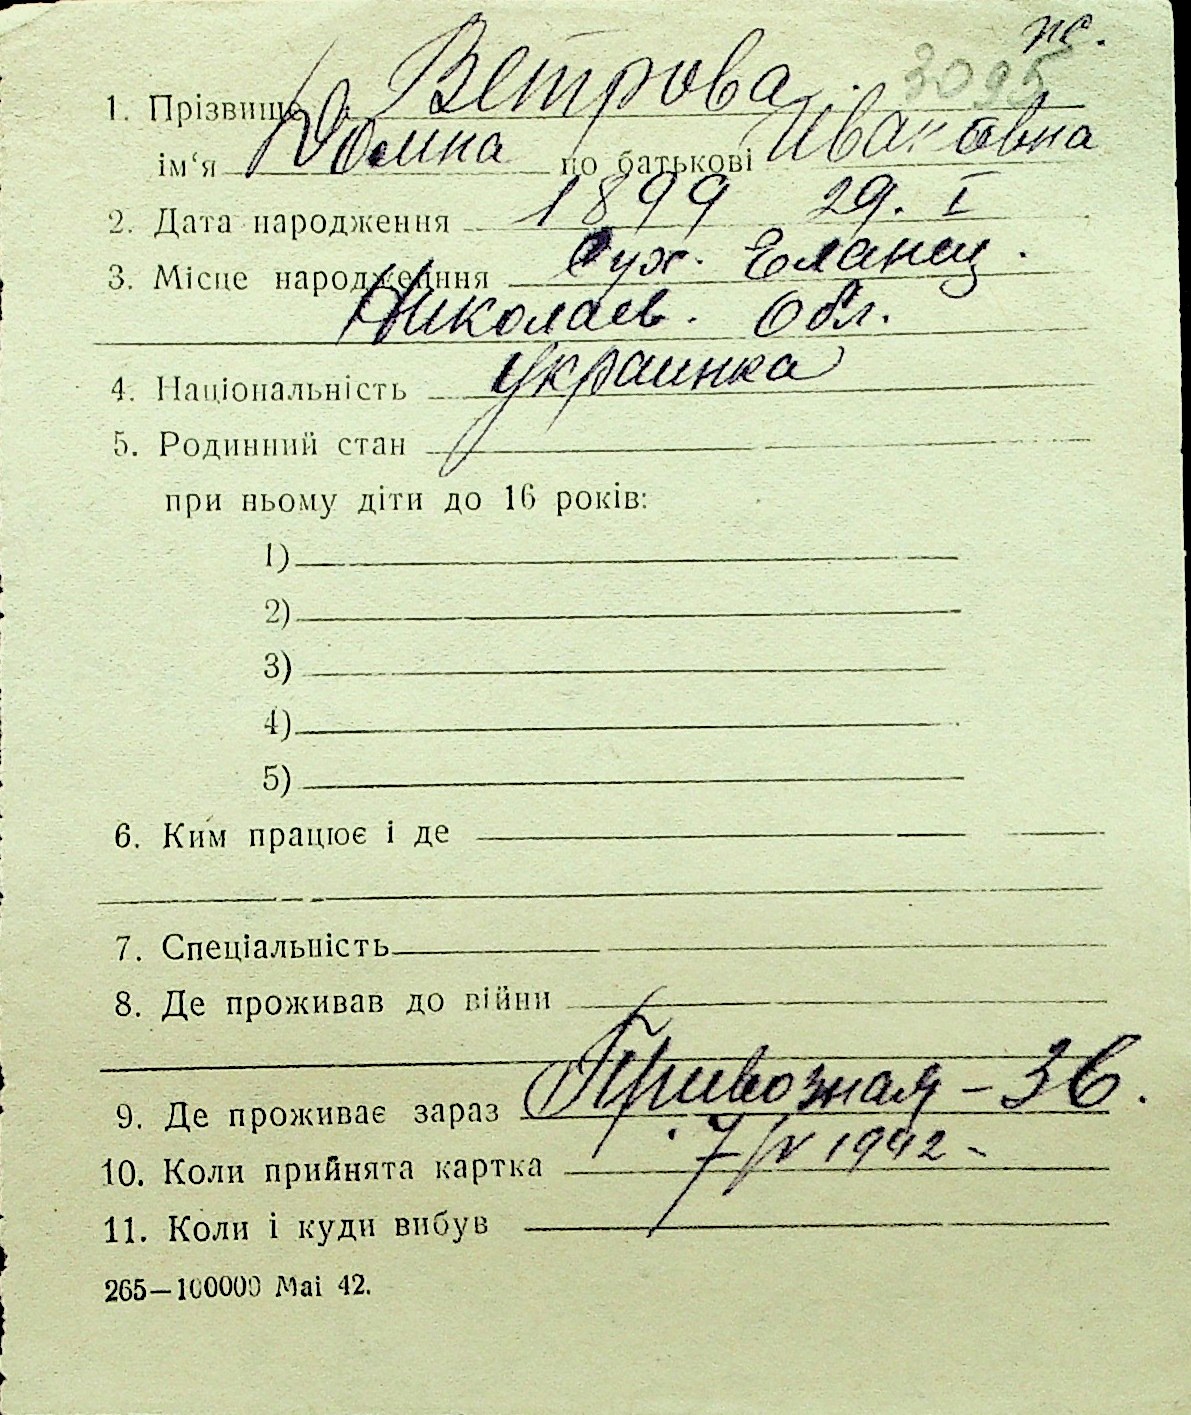 пс.
3095
1. Прізвище Ветрова
ім'я Домна по батькові Ивановна
2. Дата народження 1899 29. I
3. Місце народження Сух. Еланец.
Николаев. Обл.
4. Національність Украинка
5. Родинний стан
при ньому діти до 16 років:
1)
2)
3)
4)
5)
6. Ким працює і де
7. Спеціальність
8. Де проживав до війни
9. Де проживає зараз Привозная - 36.
10. Коли прийнята картка 7/IV 1942 -
11. Коли і куди вибув
265—100000 Mai 42.